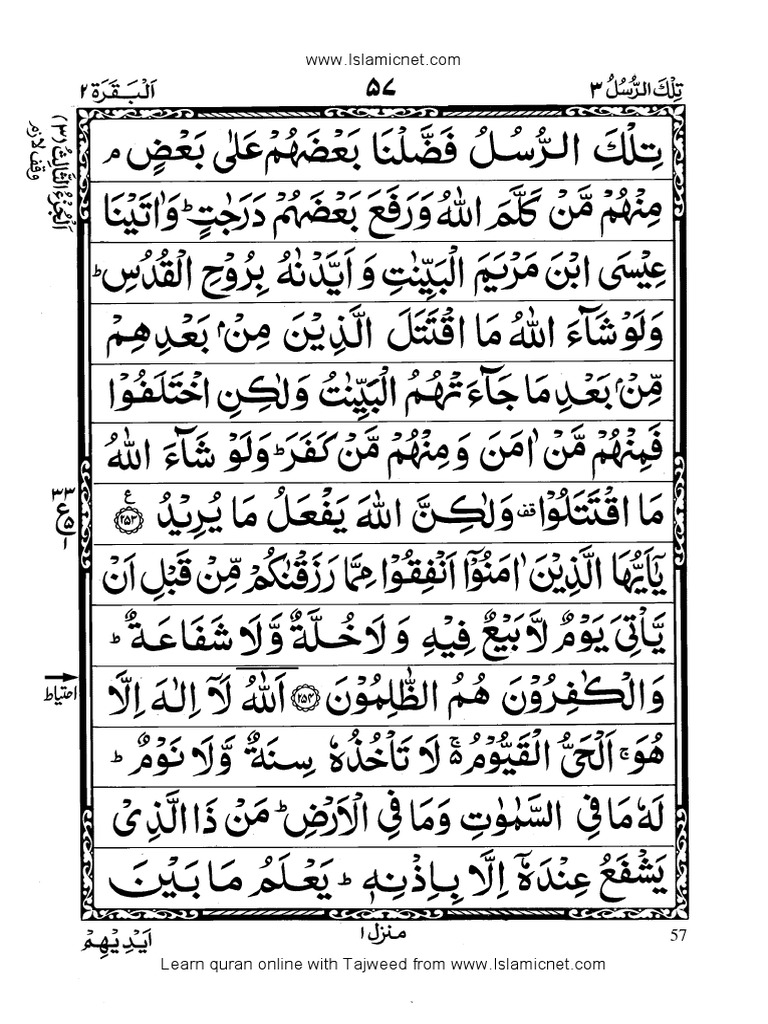 www.Islamicnet.com
تِلْكَ الرُّسُلُ ٣ ٥٧ اَلْبَقَرَة ٢
اَلْجُزْءُ الثَّالِثُ (٣)
وقف لازم
تِلْكَ الرُّسُلُ فَضَّلْنَا بَعْضَهُمْ عَلٰى بَعْضٍ ۘ
مِنْهُمْ مَّنْ كَلَّمَ اللّٰهُ وَرَفَعَ بَعْضَهُمْ دَرَجٰتٍ ؕ وَاٰتَيْنَا
عِيْسَى ابْنَ مَرْيَمَ الْبَيِّنٰتِ وَاَيَّدْنٰهُ بِرُوْحِ الْقُدُسِ ؕ
وَلَوْ شَآءَ اللّٰهُ مَا اقْتَتَلَ الَّذِيْنَ مِنْۢ بَعْدِهِمْ
مِّنْۢ بَعْدِ مَا جَآءَتْهُمُ الْبَيِّنٰتُ وَلٰكِنِ اخْتَلَفُوْا
فَمِنْهُمْ مَّنْ اٰمَنَ وَمِنْهُمْ مَّنْ كَفَرَ ؕ وَلَوْ شَآءَ اللّٰهُ
مَا اقْتَتَلُوْا ۟ وَلٰكِنَّ اللّٰهَ يَفْعَلُ مَا يُرِيْدُ ﴿٢٥٣﴾ ع
٣٣
ع
٥
١
يٰۤاَيُّهَا الَّذِيْنَ اٰمَنُوْۤا اَنْفِقُوْا مِمَّا رَزَقْنٰكُمْ مِّنْ قَبْلِ اَنْ
يَّاْتِيَ يَوْمٌ لَّا بَيْعٌ فِيْهِ وَلَا خُلَّةٌ وَّلَا شَفَاعَةٌ ؕ
وَالْكٰفِرُوْنَ هُمُ الظّٰلِمُوْنَ ﴿٢٥٤﴾ اَللّٰهُ لَاۤ اِلٰهَ اِلَّا
احتیاط
هُوَ ۚ اَلْحَيُّ الْقَيُّوْمُ ۬ۚ لَا تَاْخُذُهٗ سِنَةٌ وَّلَا نَوْمٌ ؕ
لَهٗ مَا فِي السَّمٰوٰتِ وَمَا فِي الْاَرْضِ ؕ مَنْ ذَا الَّذِيْ
يَشْفَعُ عِنْدَهٗۤ اِلَّا بِاِذْنِهٖ ؕ يَعْلَمُ مَا بَيْنَ
57 منزل ١ اَيْدِيْهِمْ
Learn quran online with Tajweed from www.Islamicnet.com